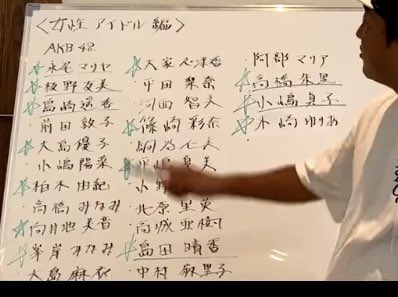 〈女性アイドル編〉
AKB48
☆永尾マリヤ
☆板野友美
☆島崎遥香
・前田敦子
☆大島優子
・小嶋陽菜
☆柏木由紀
・高橋みなみ
☆向井地美音
☆峯岸みなみ
・大島麻衣
☆大家志津香
・平田梨奈
・河西智美
☆篠崎彩奈
・
・平嶋夏美
・小野
・北原里英
・高城亜樹
☆島田晴香
・中村麻里子
・阿部マリア
☆高橋朱里
☆小嶋真子
☆木﨑ゆりあ